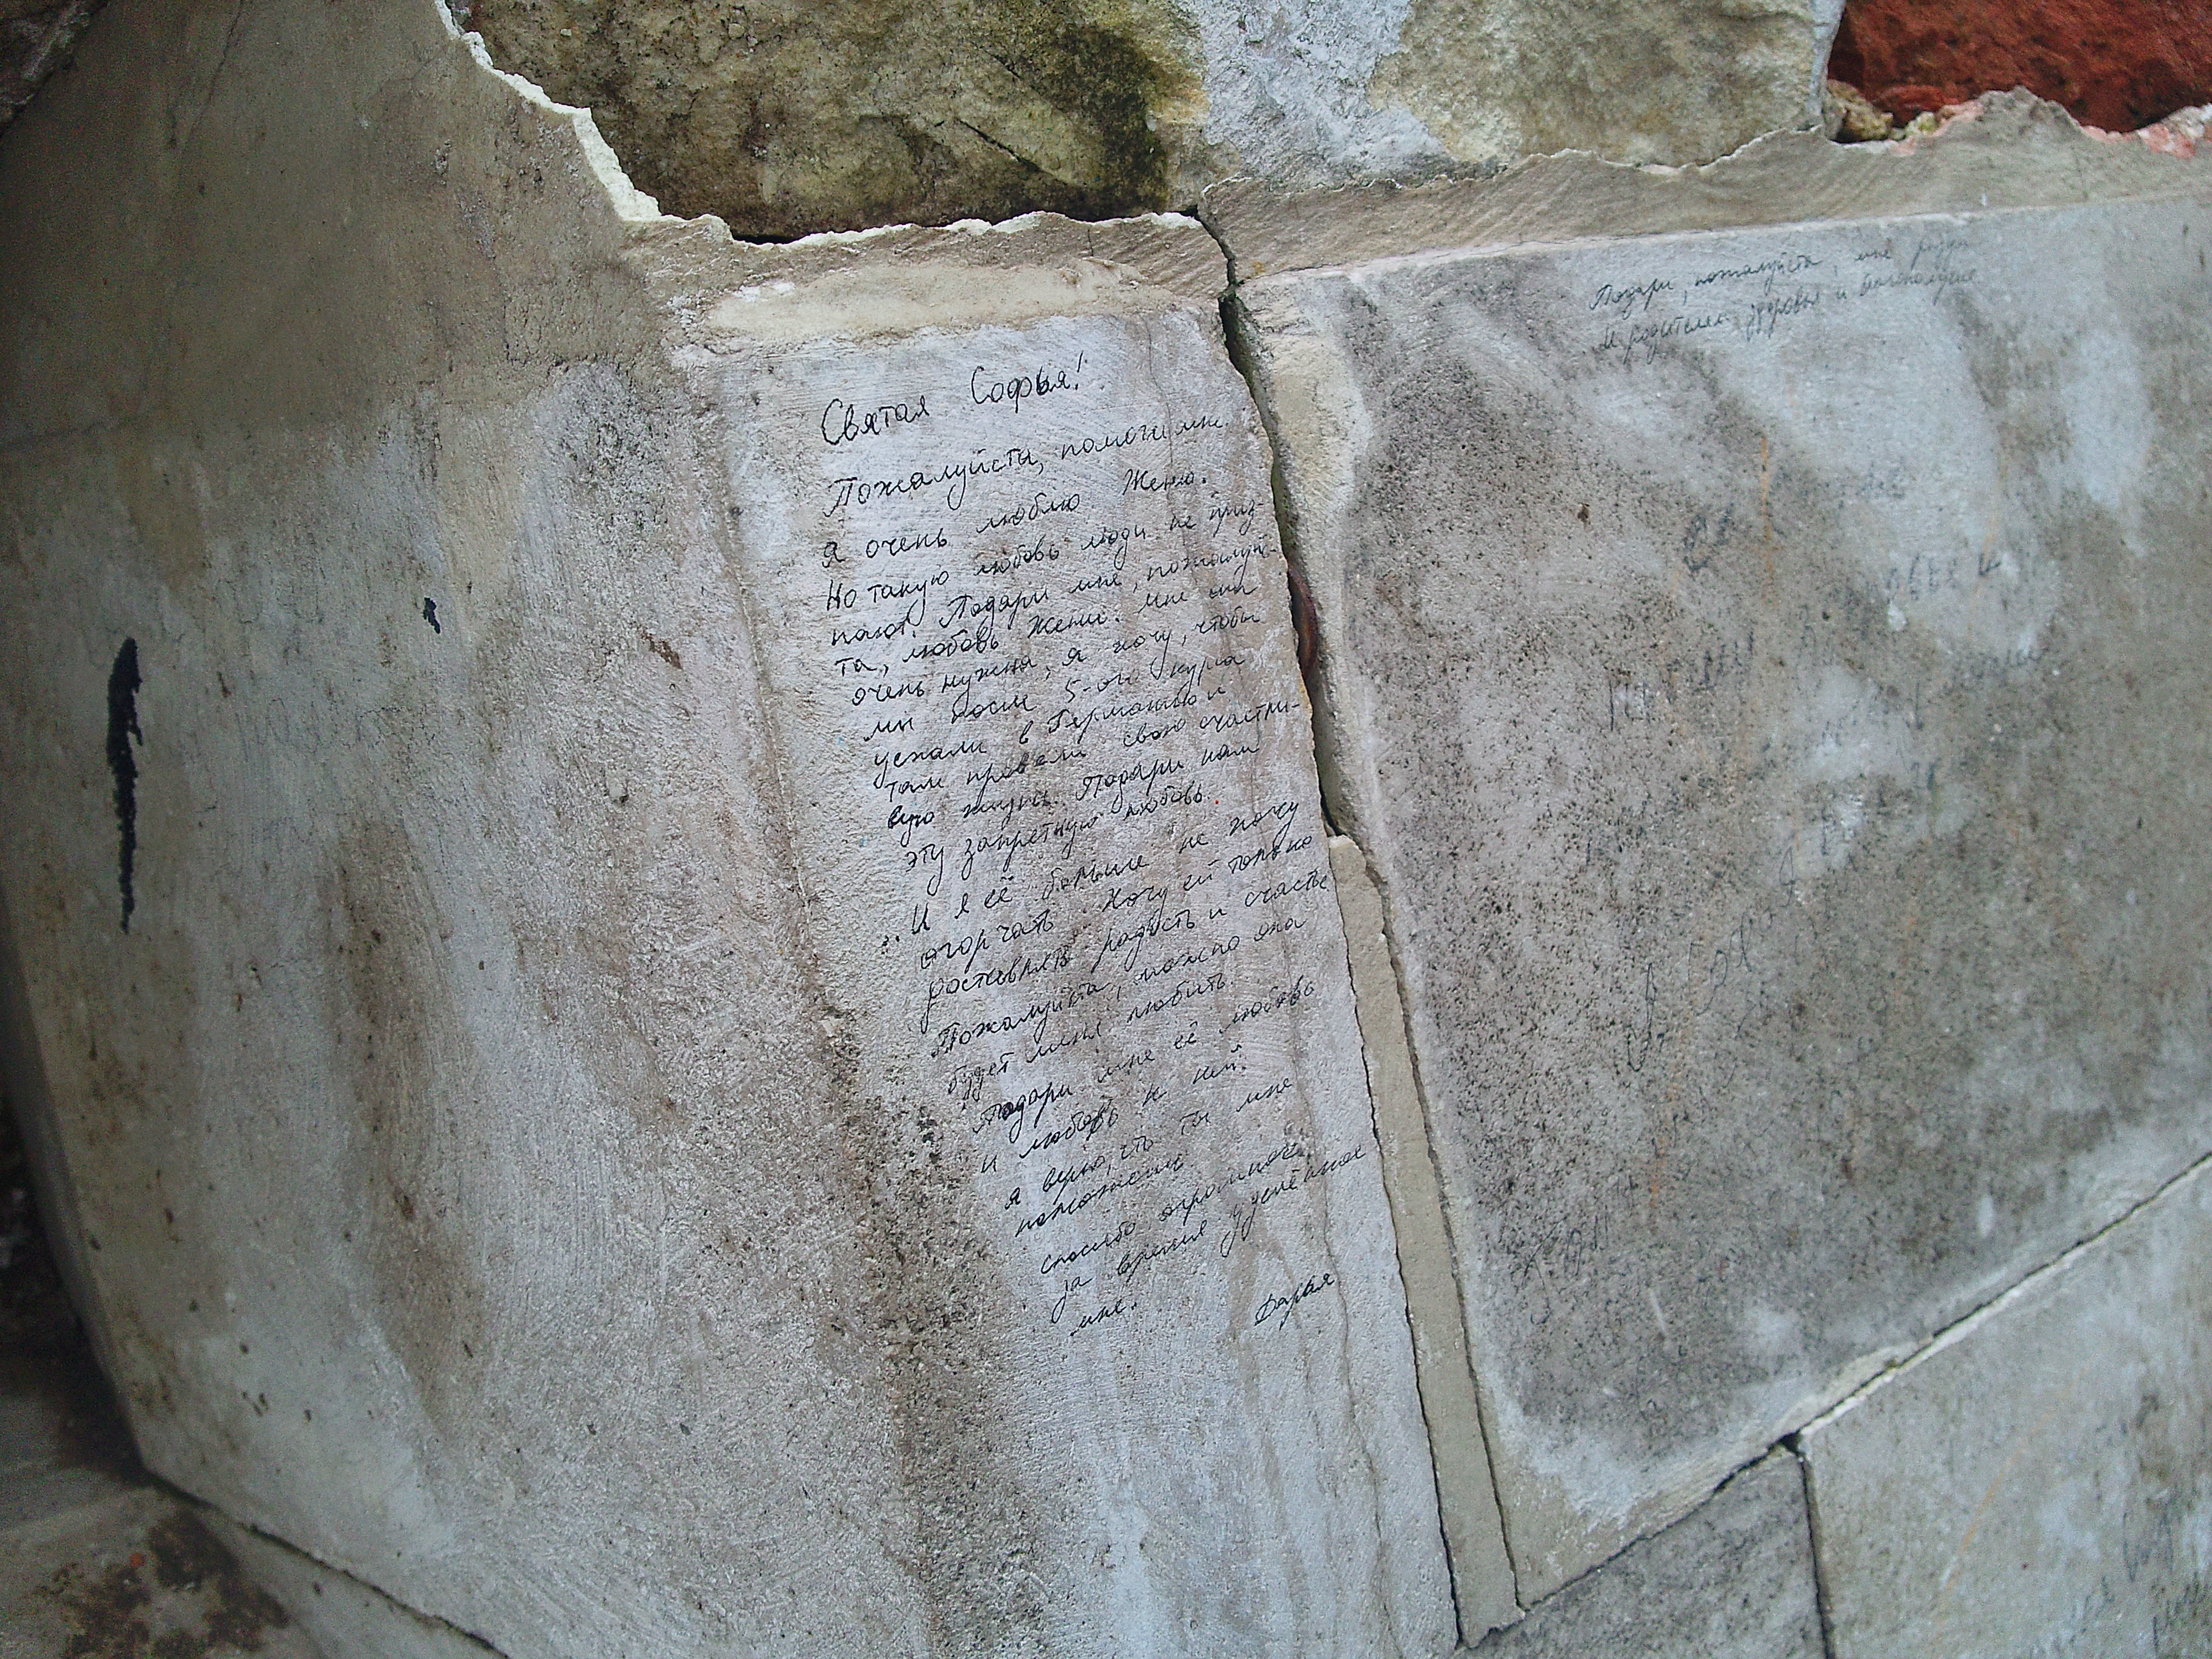 Святая Софья!
Пожалуйста, помоги мне.
Я очень люблю Женю.
Но такую любовь люди не приз-
нают. Подари мне, пожалуй-
та, любовь Жени. Мне она
очень нужна, я хочу, чтобы
мы после 5-ого курса
уехали в Германию и
там провели свою счастли-
вую жизнь. Подари нам
эту запретную любовь.
И я её больше не хочу
огорчать. Хочу ей только
доставлять радость и счастье
Пожалуйста, можно она
будет меня любить.
Подари мне её любовь
и любовь к ней.
Я верю, что ты мне
поможешь.
Спасибо огромное
за время уделённое
мне.
Дарья
Подари, пожалуйста, мне
И родителям здоровья и